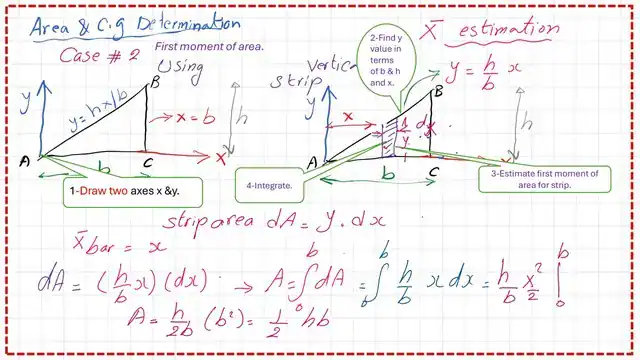 Area & C.g Determination
Case # 2
First moment of area.
Using Vertical strip
X̄ estimation
2-Find y value in terms of b & h and x.
y = h/b x
y
y = hx/b
B
→ x = b
h
A
b
C
x
1-Draw two axes x &y.
y
x
B
dx
y
h
A
b
C
x
4-Integrate.
3-Estimate first moment of area for strip.
strip area dA = y.dx
x̄ bar = x
dA = (h/b x) (dx) → A = ∫ₒᵇ dA = ∫ₒᵇ h/b x dx = h/b x²/2 |ₒᵇ
A = h/2b (b²) = 1/2 hb